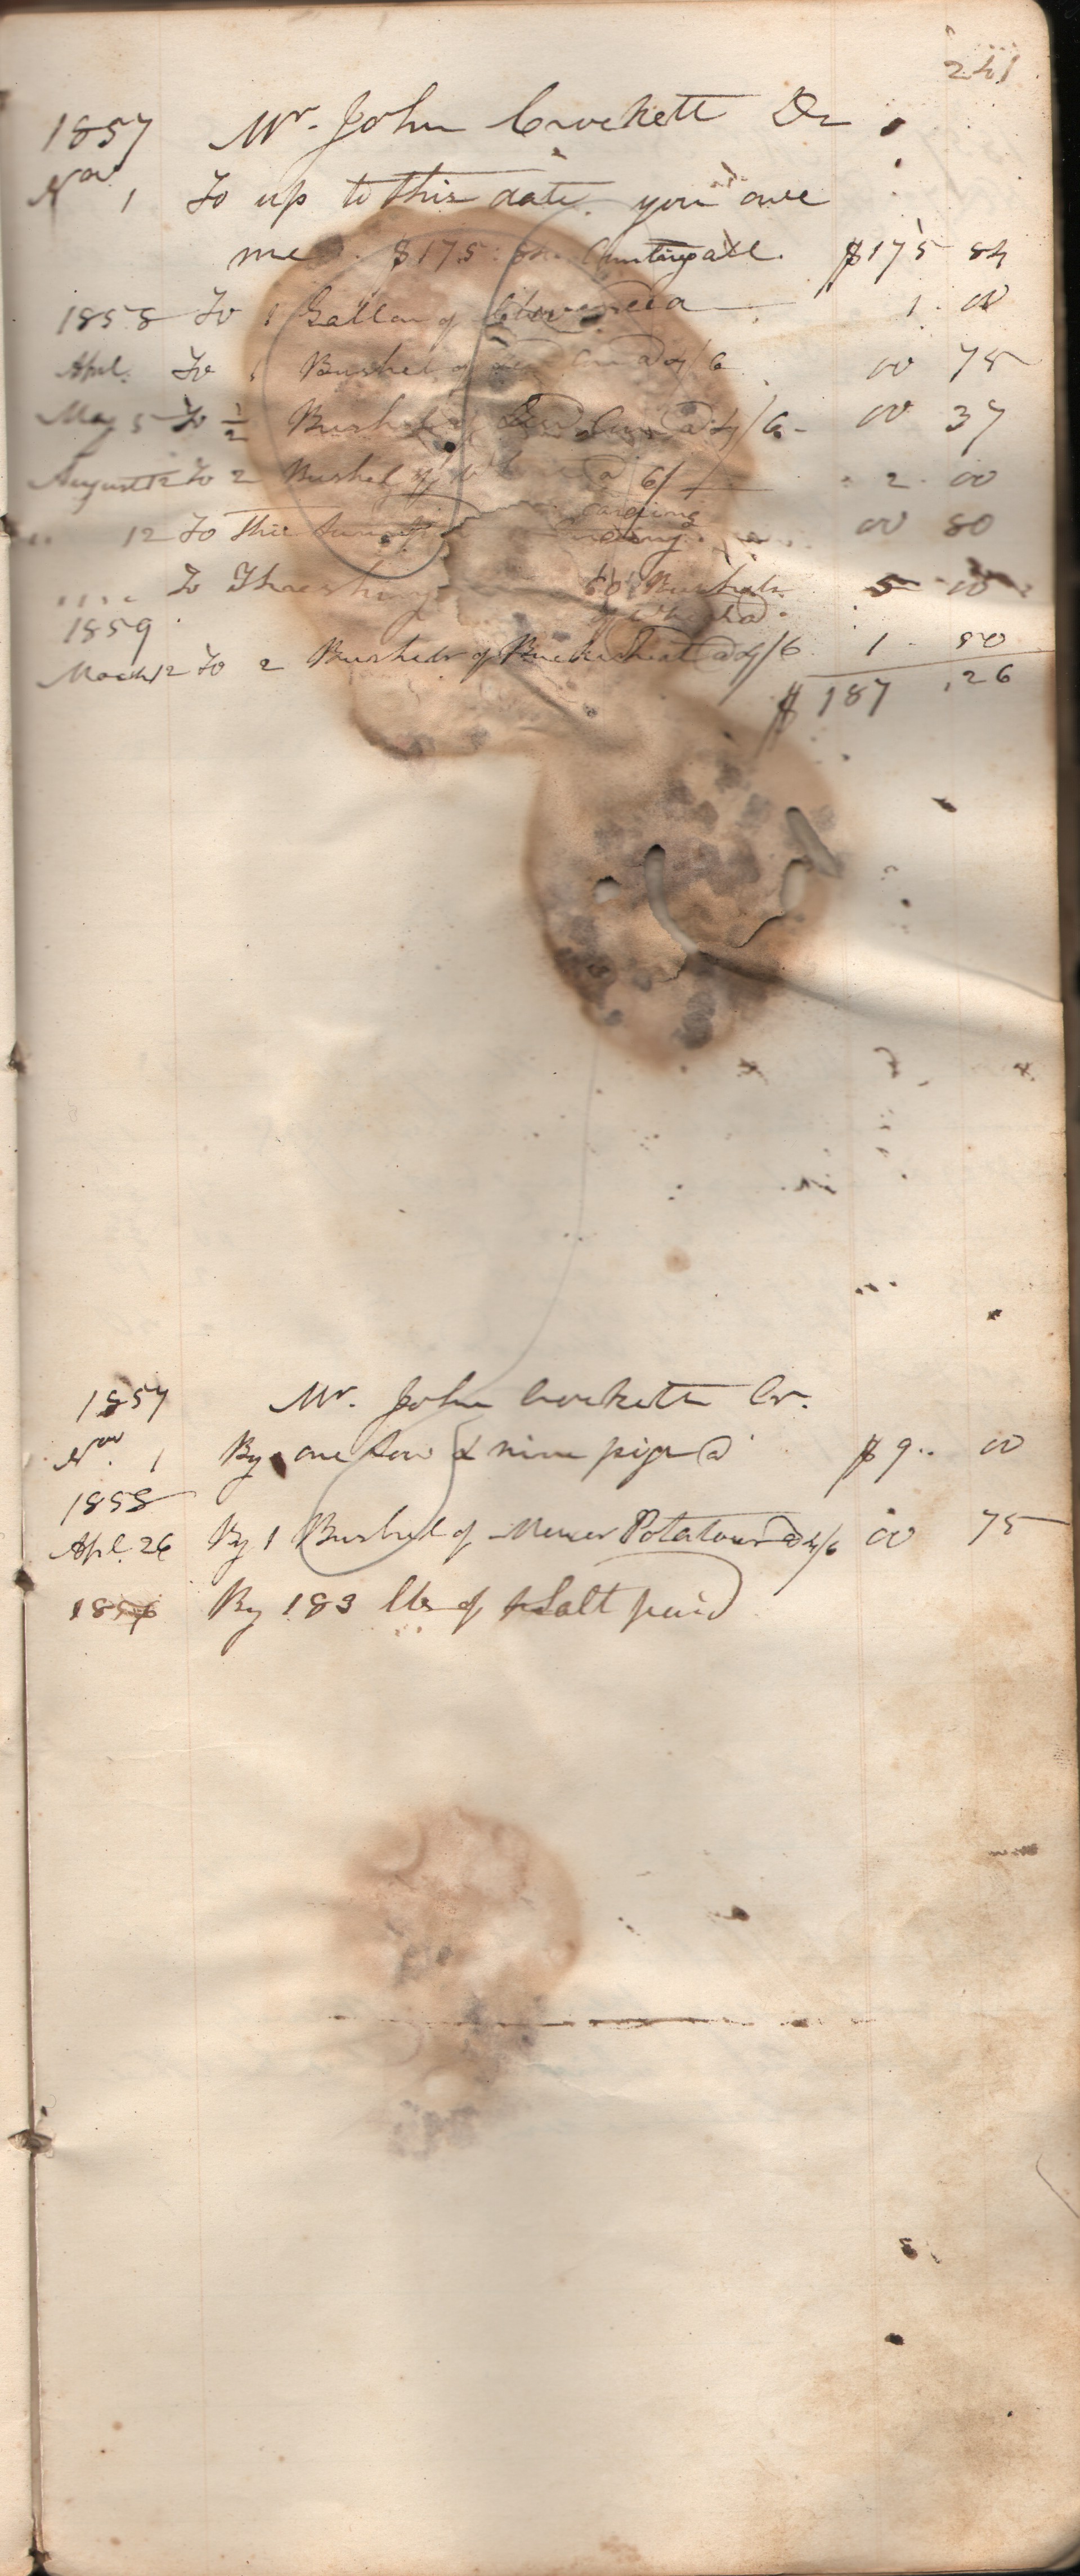 241
1857 Mr. John Crockett Dr
Nov 1 To up to this date you owe
me $175: $175 84
1858 To 1 Gallon of Cloverseed 1. 00
Apl. To 1 Bushel of @ 4/6 00 75
May 5 To 1/2 Bushel of @ 4/6- 00 37
August 12 To 2 Bushel of @ 6/ 2. 00
12 To 00 80
To Threshing 60 Bushels 5 00
of @
1859
March 12 To 2 Bushels of Buckwheat @ 4/6 1. 50
$187.26
1857 Mr. John Crockett Cr.
Nov. 1 By one Sow & nine pigs @ $9.. 00
1858
Apl. 26 By 1 Bushel of Mercer Potatoes @ 4/6 00 75
By 183 lbs of Salt paid